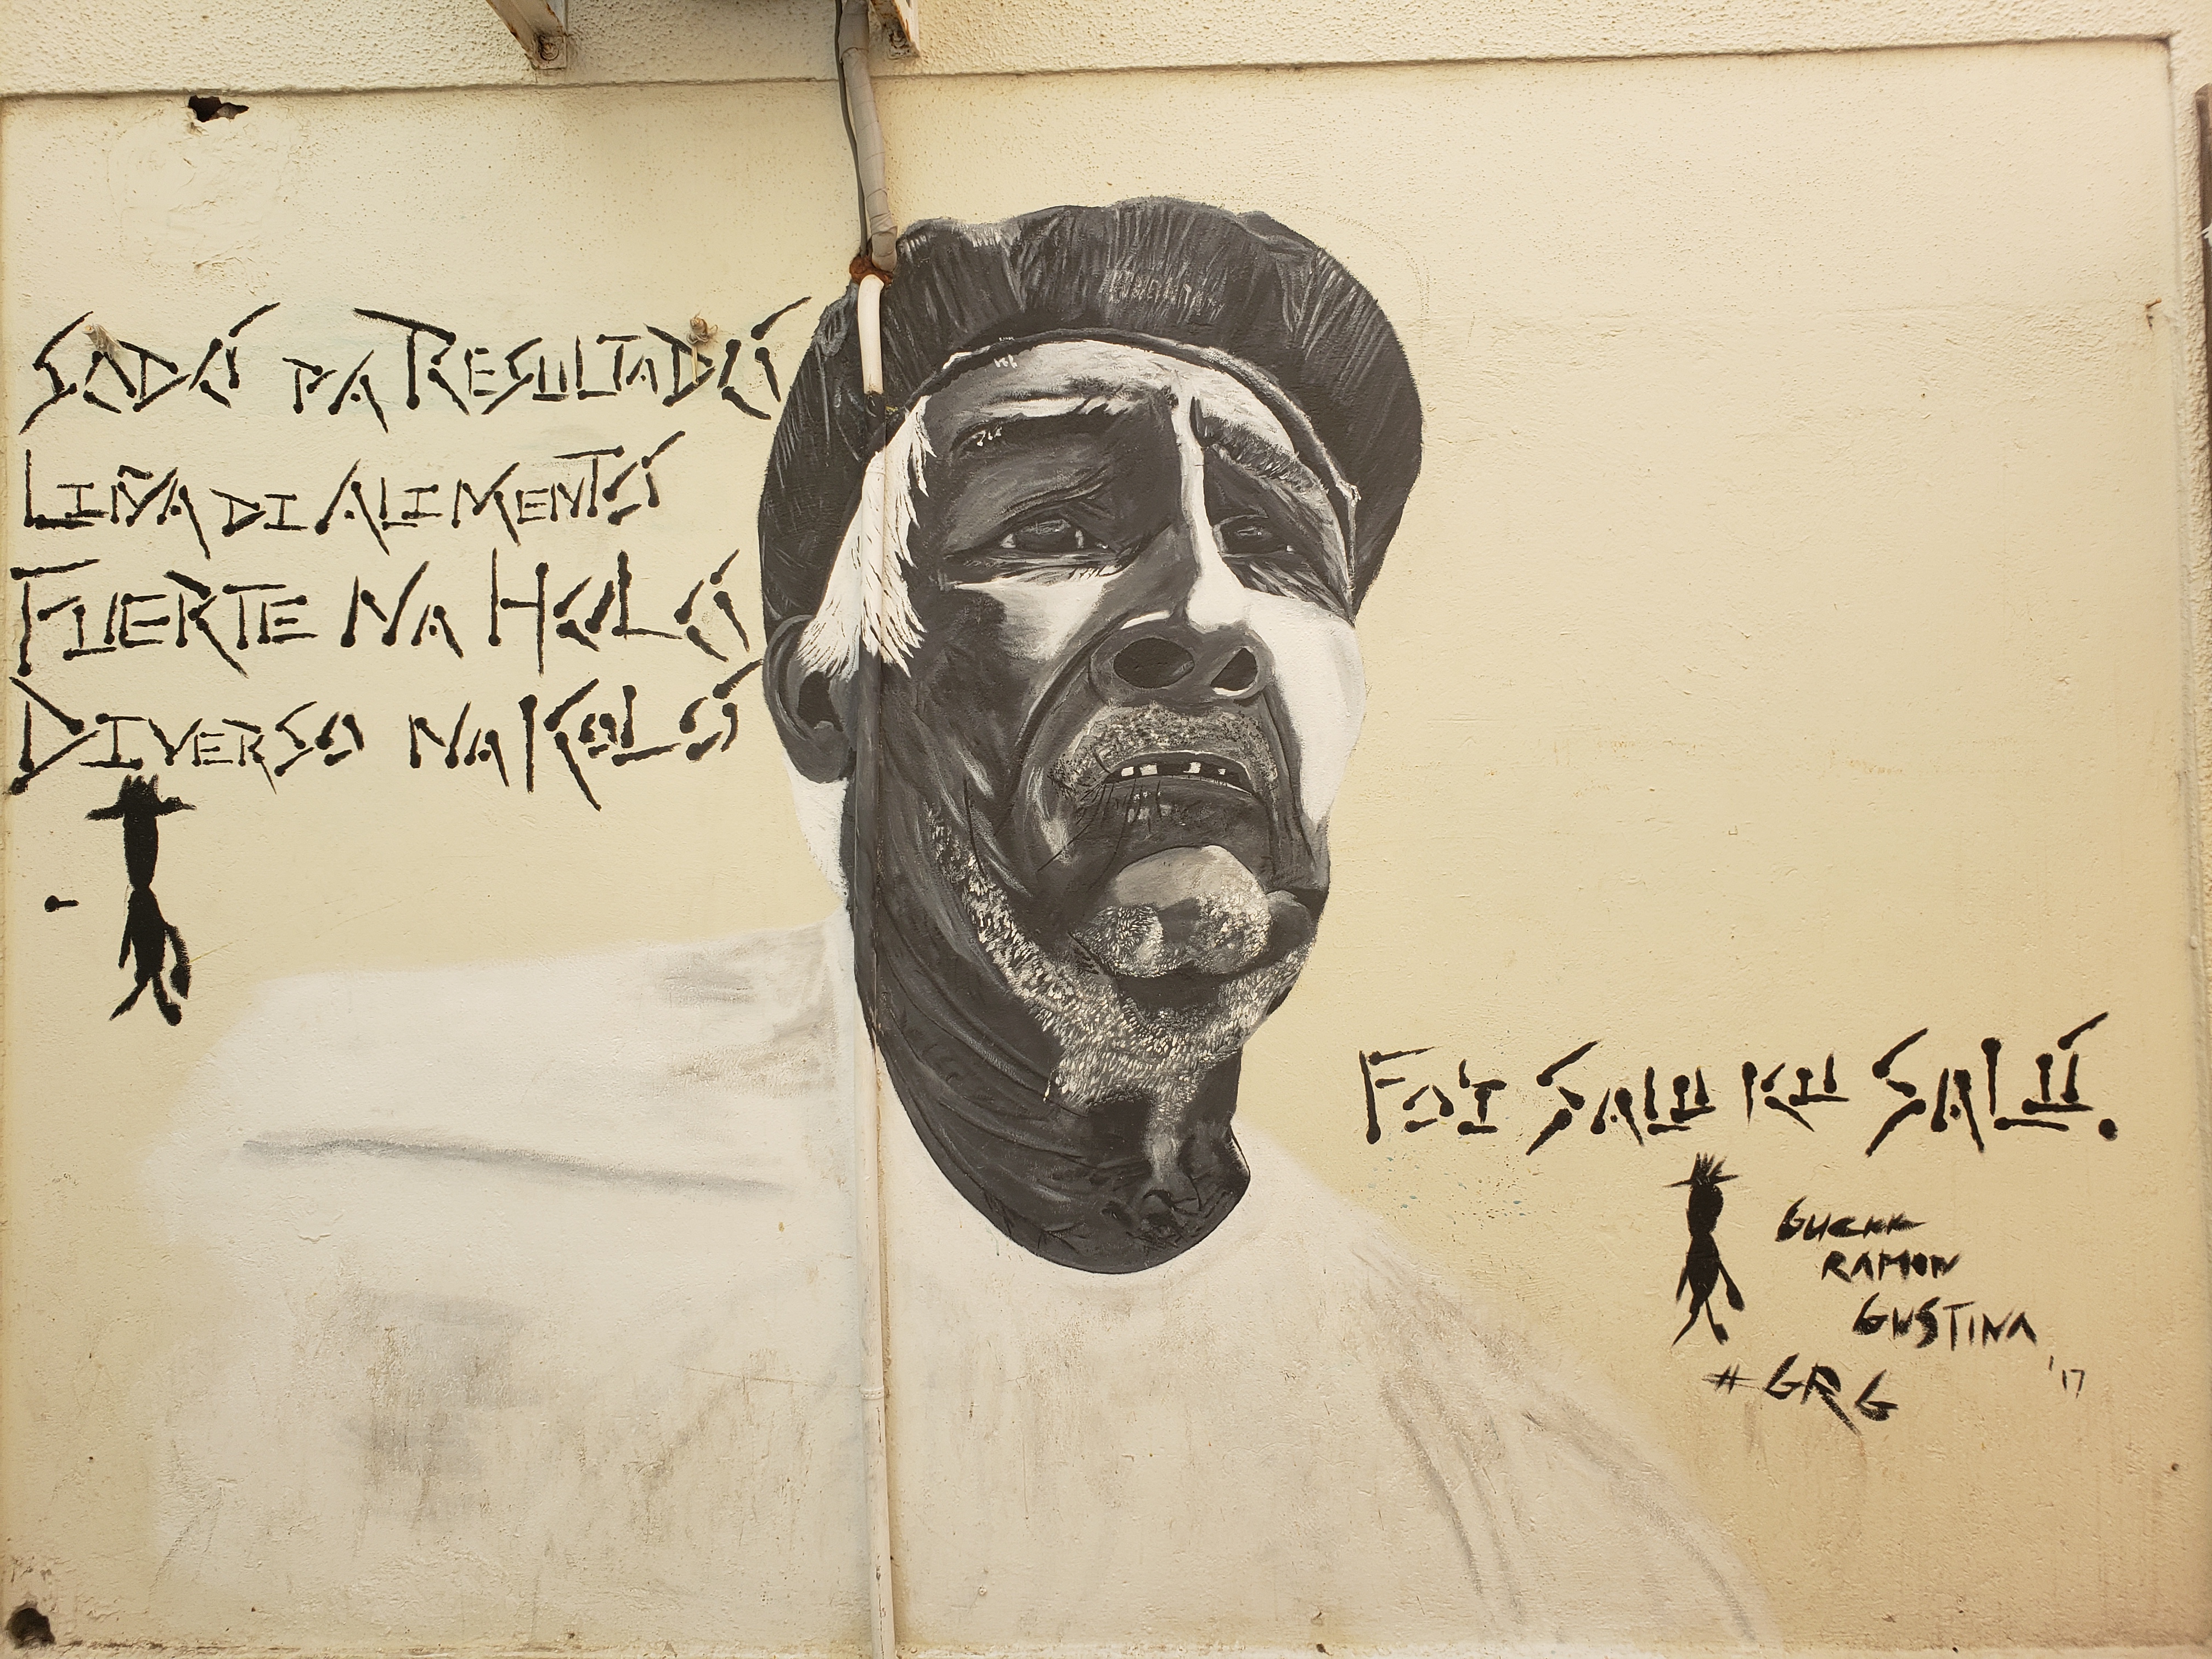 SODÓ PA RESULTADÓ
LIÑA DI ALIMENTÓ
FUERTE NA HOLÓ
DIVERSO NA KOLÓ
SALU KU SALÚ.
RAMON
GUSTINA
'17
#GRG